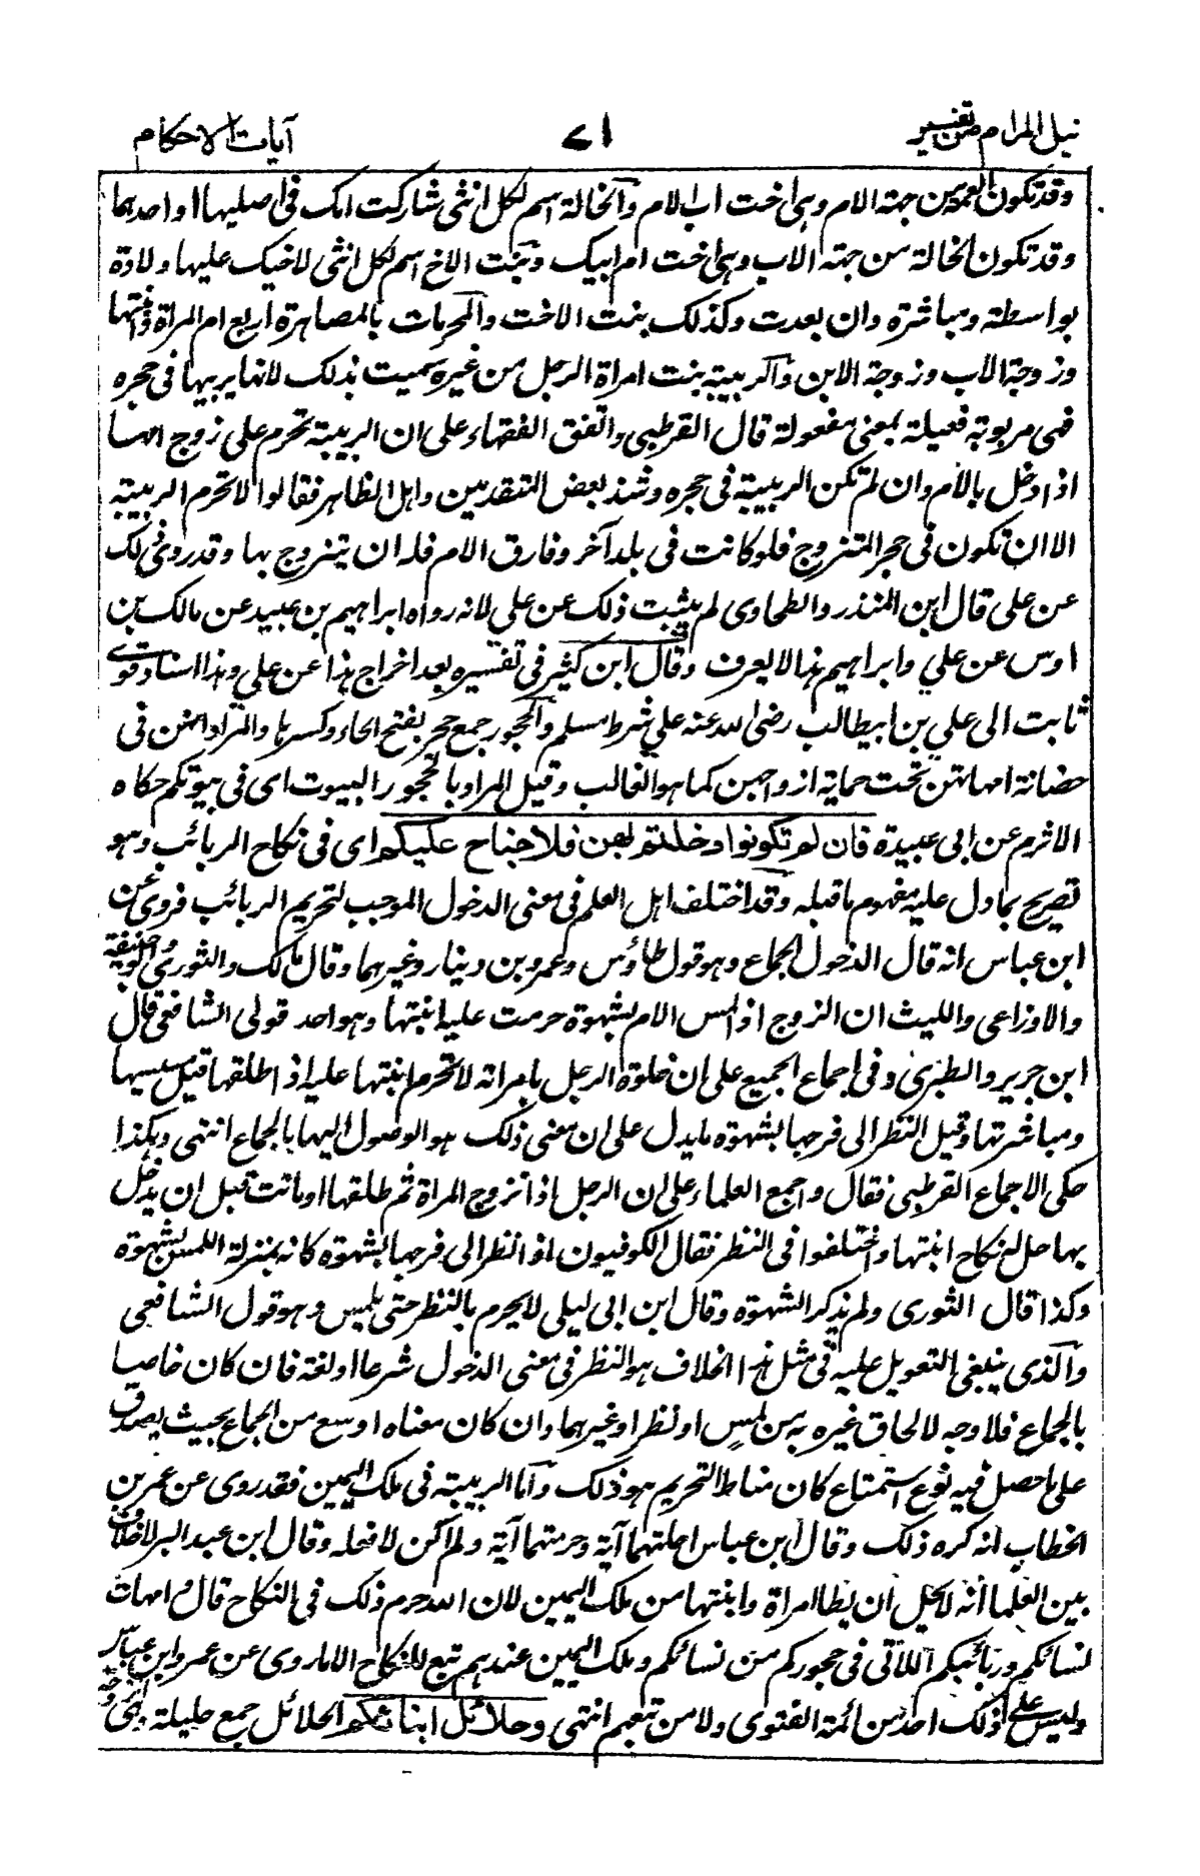 نيل المرام من تفسير ٧١ آيات الاحكام
وقد تكون العمة من جهة الام وهى اخت اب الام والخالة اسم لكل انثى شاركت امك فى اصليها او احدهما
وقد تكون الخالة من جهة الاب وهى اخت ام ابيك وبنت الاخ اسم لكل انثى لاخيك عليها ولادة
بواسطة ومباشرة وان بعدت وكذلك بنت الاخت والمحرمات بالمصاهرة اربع ام المراة وابنتها
وزوجة الاب وزوجة الابن والربيبة بنت امراة الرجل من غيره سميت بذلك لانه يربيها فى حجره
فهى مربوبة فعيلة بمعنى مفعولة قال القرطبى واتفق الفقهاء على ان الربيبة تحرم على زوج امها
اذا دخل بالام وان لم تكن الربيبة فى حجره وشذ بعض المتقدمين واهل الظاهر فقالوا لا تحرم الربيبة
الا ان تكون فى حجر المتزوج فلو كانت فى بلد آخر وفارق الام فله ان يتزوج بها وقد روى ذلك
عن على قال ابن المنذر والطحاوى لم يثبت ذلك عن على لانه رواه ابراهيم بن عبيد عن مالك بن
اوس عن علي وابراهيم هذا لا يعرف وقال ابن كثير فى تفسيره بعد اخراج هذا عن علي وهذا اسناد قوى
ثابت الى علي بن ابيطالب رضى الله عنه علي شرط مسلم والحجور جمع حجر بفتح الحاء وكسرها والمراد انهن فى
حضانة امهاتهن تحت حماية ازواجهن كما هو الغالب وقيل المراد بالحجور البيوت اى فى بيوتكم حكاه
الاثرم عن ابى عبيدة فان لم تكونوا دخلتم بهن فلا جناح عليكم اى فى نكاح الربائب وهو
تصريح بما دل عليه مفهوم ما قبله وقد اختلف اهل العلم فى معنى الدخول الموجب لتحريم الربائب فروى عن
ابن عباس انه قال الدخول الجماع وهو قول طاؤس وعمرو بن دينار وغيرهما وقال مالك والثورى وابو حنيفة
والاوزاعى والليث ان الزوج اذا لمس الام بشهوة حرمت عليه ابنتها وهو احد قولى الشافعى قال
ابن جرير والطبرى وفى اجماع الجميع على ان خلوة الرجل بامراته لا تحرم ابنتها عليه اذا طلقها قبل مسيسها
ومباشرتها وقبل النظر الى فرجها بشهوة ما يدل على ان معنى ذلك هو الوصول اليها بالجماع انتهى وهكذا
حكى الاجماع القرطبى فقال واجمع العلماء على ان الرجل اذا تزوج المراة ثم طلقها او ماتت قبل ان يدخل
بها حل له نكاح ابنتها واختلفوا فى النظر فقال الكوفيون اذا نظر الى فرجها بشهوة كانه بمنزلة اللمس بشهوة
وكذا قال الثورى ولم يذكر الشهوة وقال ابن ابى ليلى لا يحرم بالنظر حتى يلمس وهو قول الشافعى
والذى ينبغى التعويل عليه فى مثل هذا الخلاف هو النظر فى معنى الدخول شرعا او لغة فان كان خاصا
بالجماع فلا وجه لالحاق غيره به من لمس او نظر او غيرهما وان كان معناه اوسع من الجماع بحيث يصدق
على ما حصل فيه نوع استمتاع كان مناط التحريم هو ذلك واما الربيبة فى ملك اليمين فقد روى عن عمر بن
الخطاب انه كره ذلك وقال ابن عباس احلتهما آية وحرمتهما آية ولم اكن لافعله وقال ابن عبد البر لا خلاف
بين العلما انه لا يحل ان يطا امراة وابنتها من ملك اليمين لان الله حرم ذلك فى النكاح قال وامهات
نسائكم وربائبكم اللاتى فى حجوركم من نسائكم وملك اليمين عندهم تبع للنكاح الا ما روى عن عمر وابن عباس
وليس على ذلك احد من ائمة الفتوى ولا من تبعهم انتهى وحلائل ابنائكم الحلائل جمع حليلة